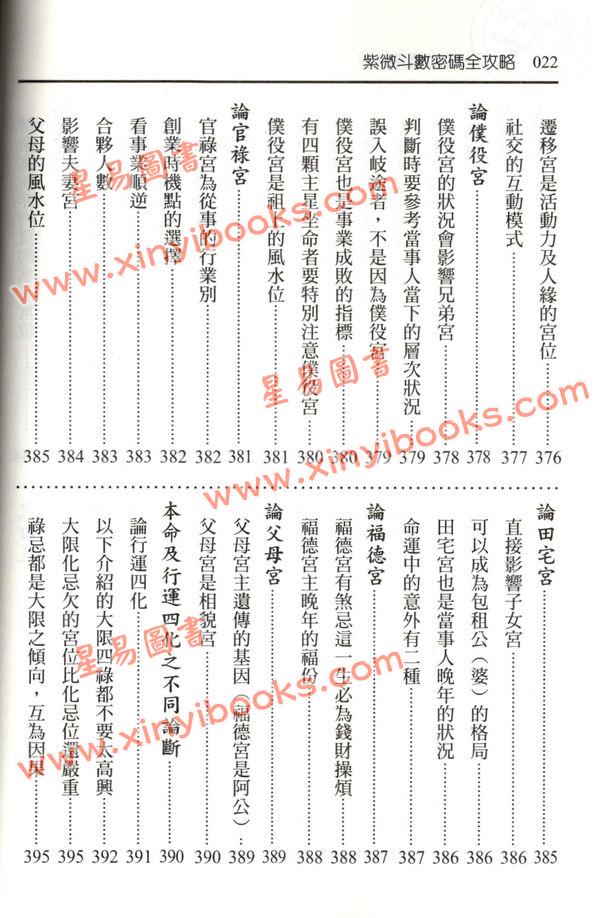 紫微斗數密碼全攻略 022
遷移宮是活動力及人緣的宮位……376
社交的互動模式……377
論僕役宮……378
僕役宮的狀況會影響兄弟宮……378
判斷時要參考當事人當下的層次狀況……379
誤入岐途者，不是因為僕役宮……379
僕役宮也是事業成敗的指標……380
有四顆主星坐命者要特別注意僕役宮……380
僕役宮是祖上的風水位……381
論官祿宮……381
官祿宮為從事的行業別……382
創業時機點的選擇……382
看事業順逆……383
合夥人數……383
影響夫妻宮……384
父母的風水位……385
論田宅宮……385
直接影響子女宮……386
可以成為包租公（婆）的格局……386
田宅宮也是當事人晚年的狀況……386
命運中的意外有二種……387
論福德宮……387
福德宮有煞忌這一生必為錢財操煩……388
福德宮主晚年的福份……388
論父母宮……389
父母宮主遺傳的基因（福德宮是阿公）……389
父母宮是相貌宮……390
本命及行運四化之不同論斷……390
論行運四化……391
以下介紹的大限四祿都不要太高興……392
大限化忌欠的宮位比化忌位還嚴重……395
祿忌都是大限之傾向，互為因果……395
星易圖書
www.xinyibooks.com
星易圖書
www.xinyibooks.com
星易圖書
www.xinyibooks.com